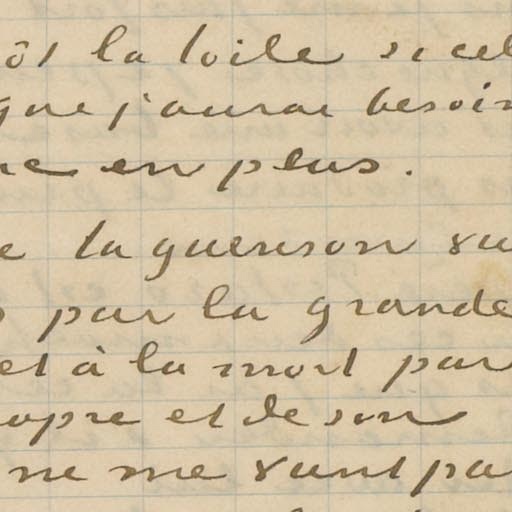 ôt la toile si cel
que j'aurai besoin
ne en plus.
e la guerison su
par la grande
et à la mort par
et de son
ne me sont pa